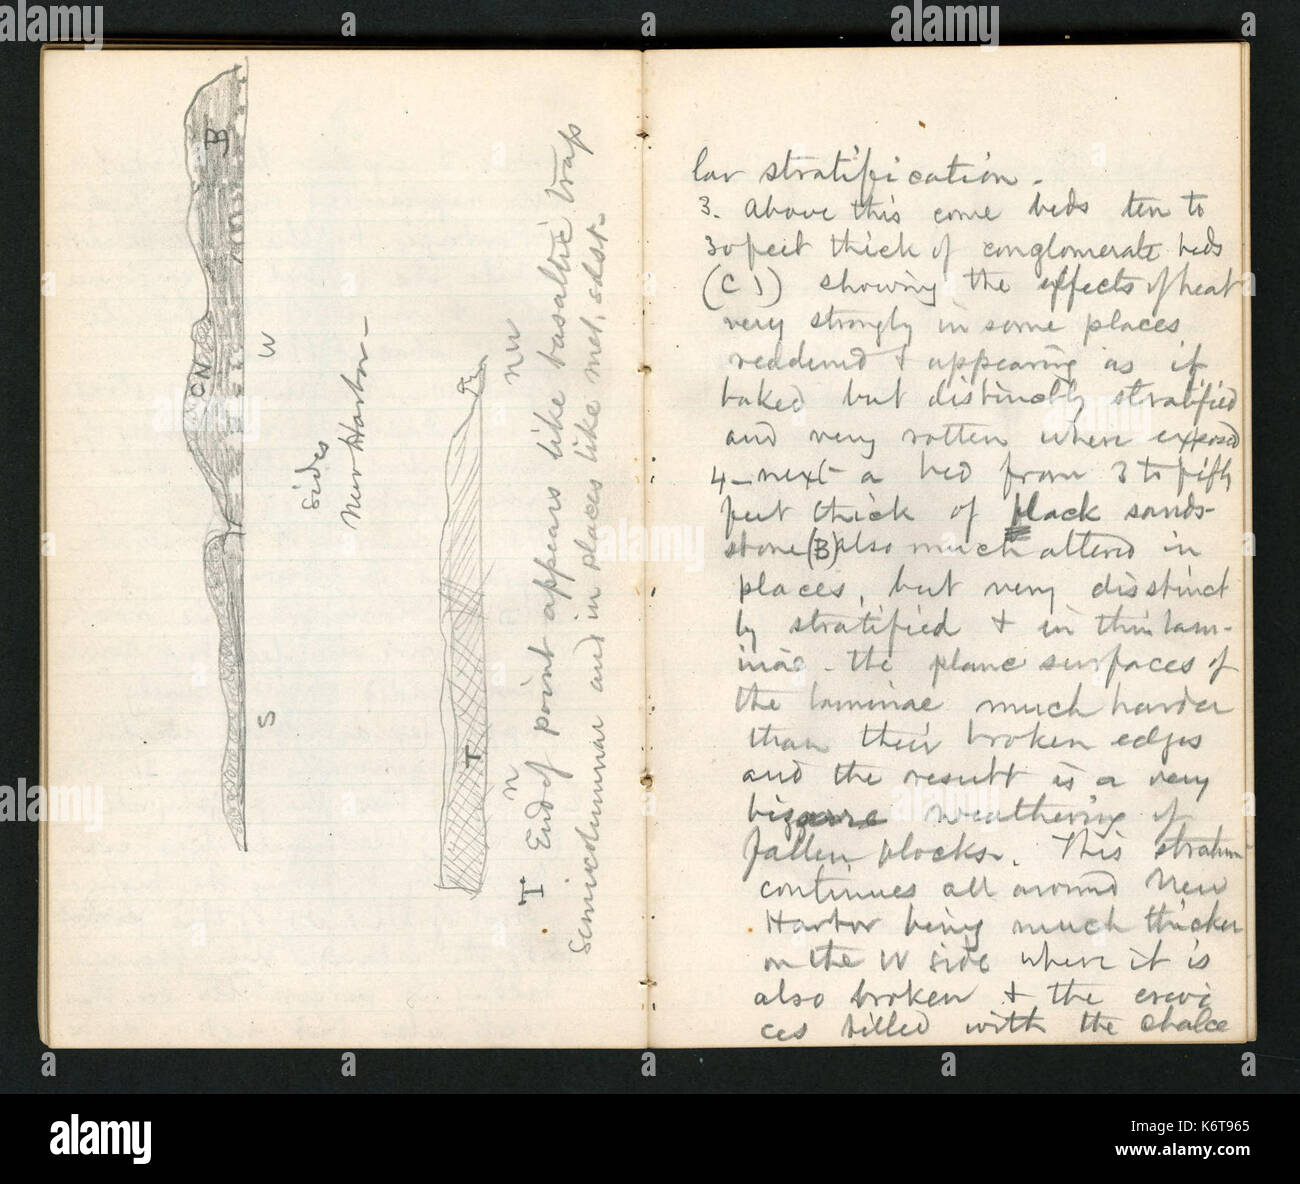 B
CN
W
S
Sides
New Harbor-
T
T
n
nw
T End of point appears like basaltic trap
Semicolumnar and in places like med, sdst.
lar stratification.
3. Above this come beds ten to
30 feet thick of conglomerate beds
(C 1) showing the effects of heat
very strongly in some places
reddened + appearing as if
baked but distinctly stratified
and very rotten where exposed
4- next a bed from 3 to fifty
feet thick of black sand-
stone (B) also much altered in
places, but very disstinct
ly stratified + in thin lam-
inae - the plane surfaces of
the laminae much harder
than their broken edges
and the result is a very
bizzare weathering of
fallen blocks. This stratum
continues all around New
Harbor being much thicker
on the W side where it is
also broken + the crevi
ces filled with the chalce
alamy
a
K6T965